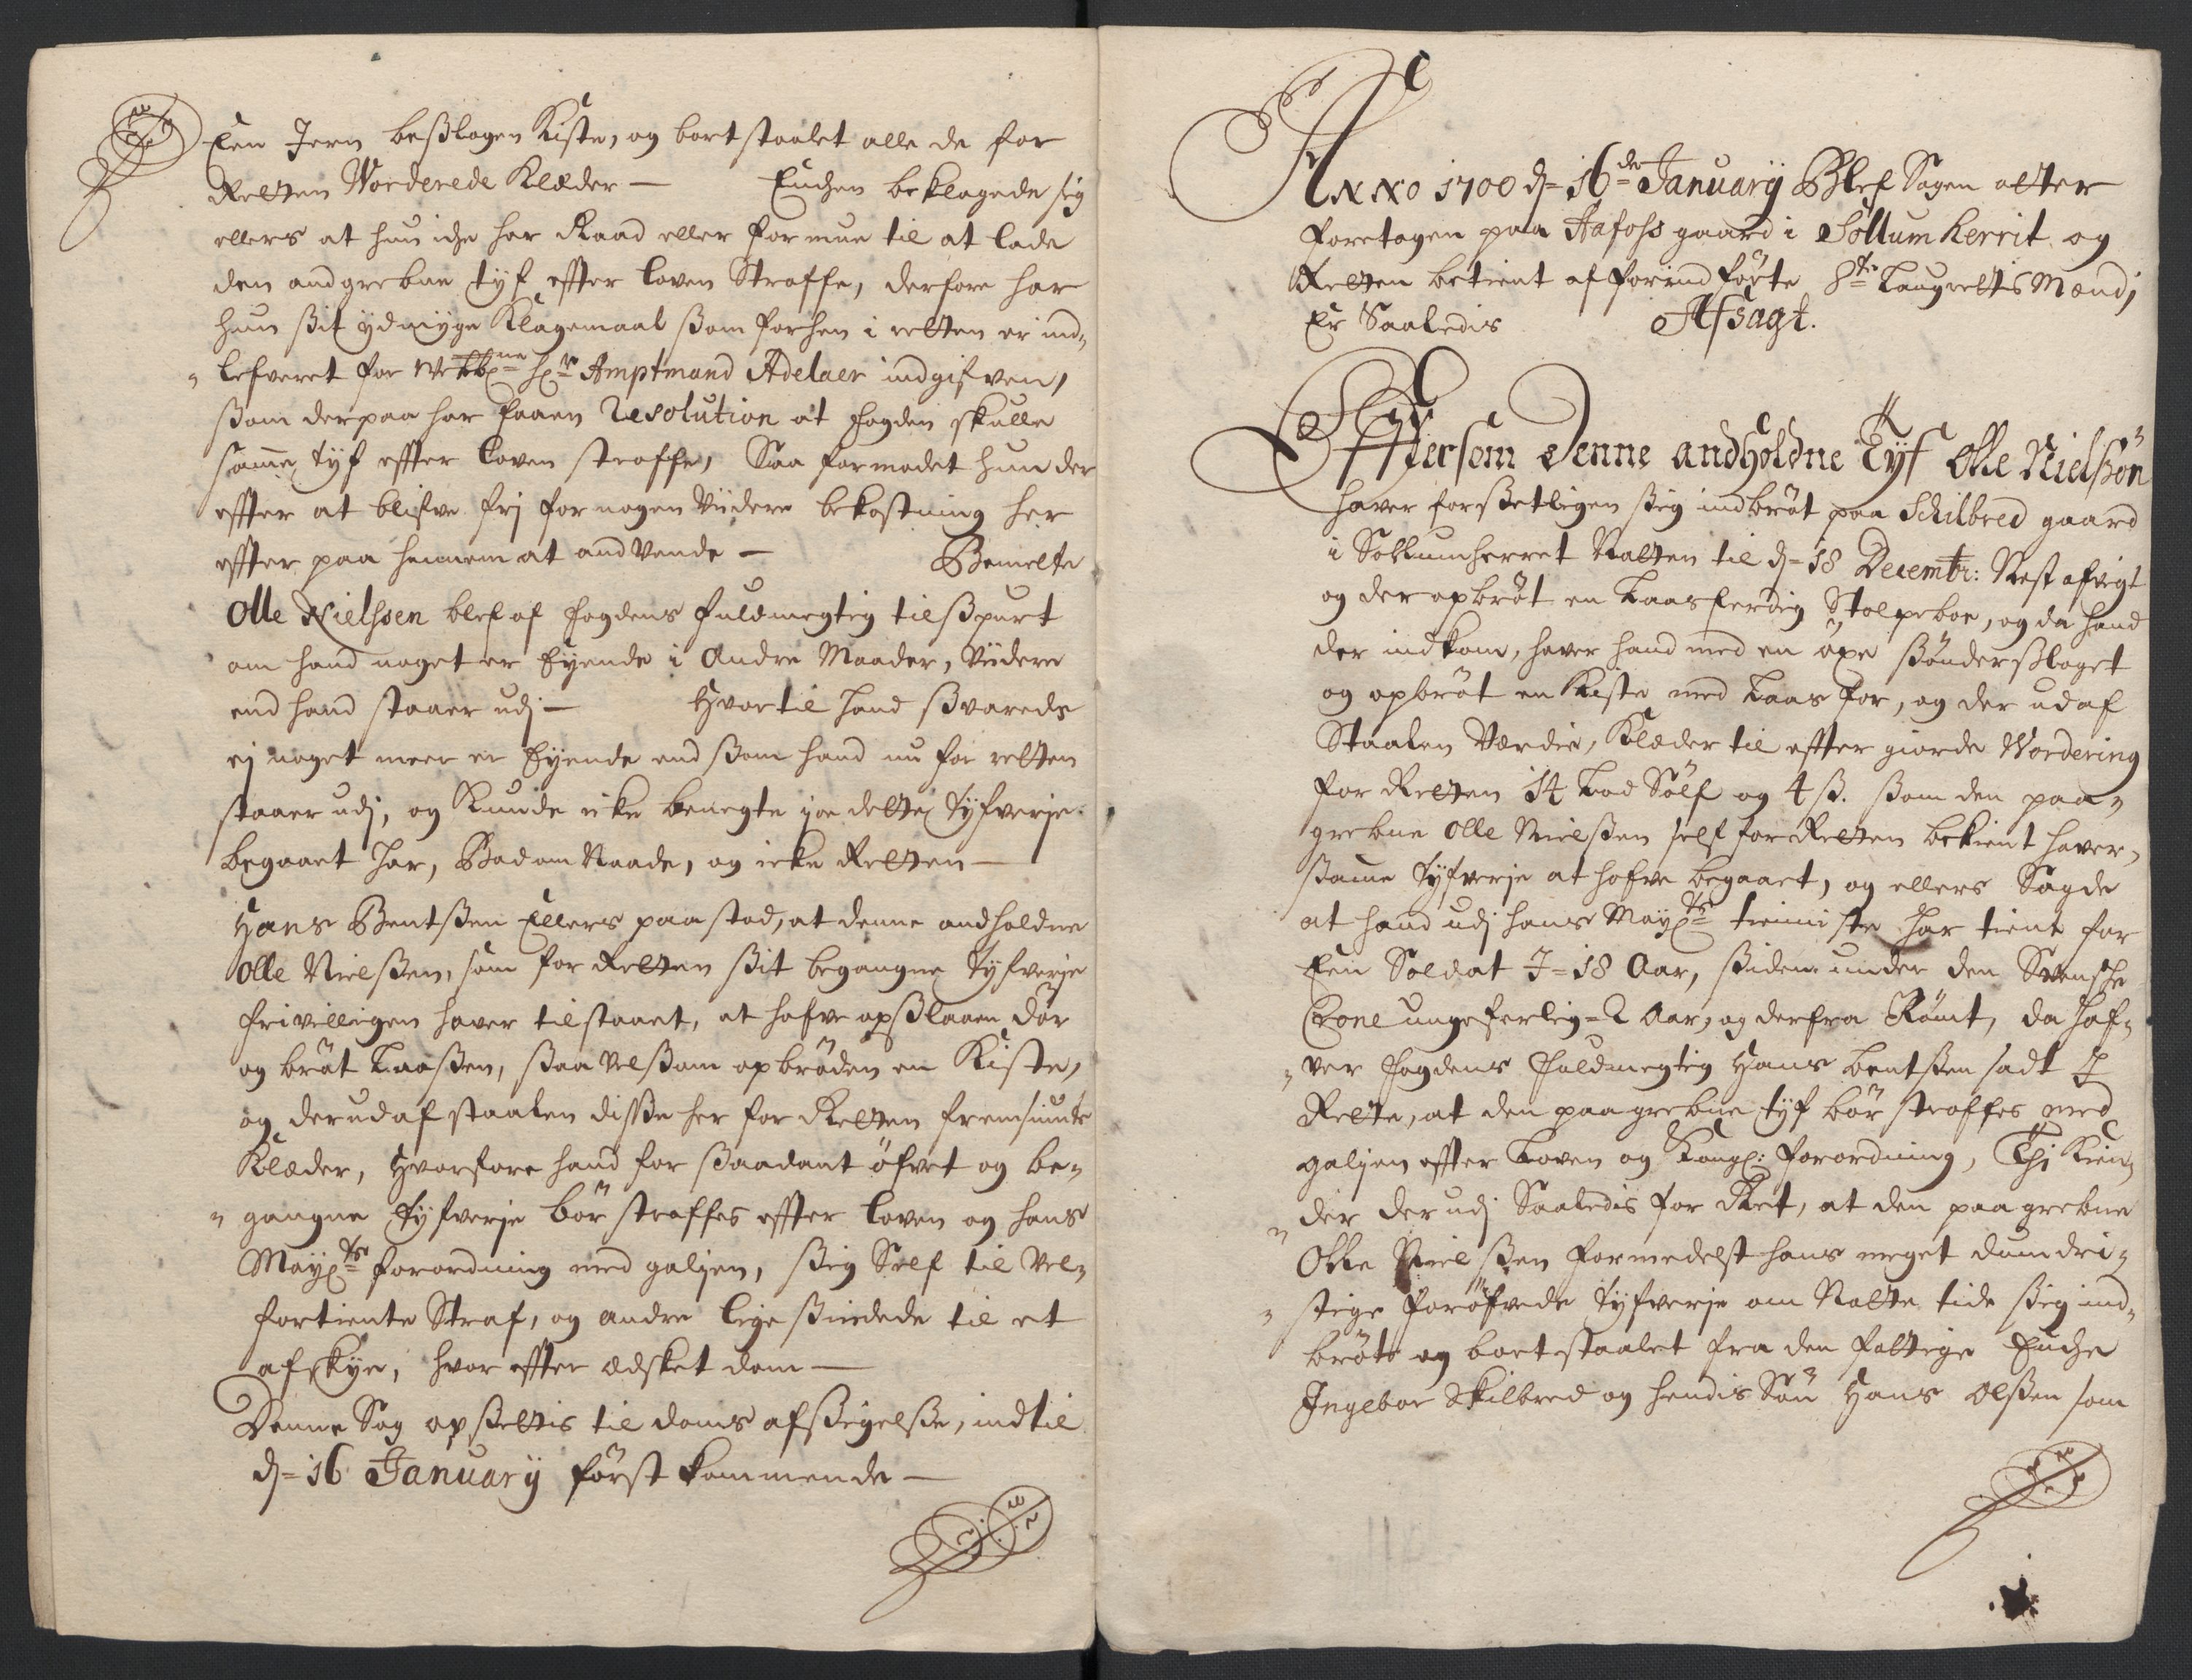 Een Jern beßlagen Kiste, og bortstaalet alle de for
Retten Worderede Klæder — Enchen beklagede sig
ellers at hun iche har Raad eller formue til at lade
den andgrebne tyf effter loven Straffe, derfore har
hun ßit ydmyge Klagemaal ßom forhen i retten er ind-
lefveret for Hr Amptmand Adelaer indgifven,
ßom derpaa har faaen Resolution at fogden skulle
samme tyf effter loven straffe, Saa formodet hun der
effter at blifve frj for nogen Viidere bekostning her
effter paa hannem at andVende — Bemelte
Olle Nielßen blef af fogdens fuldmegtig tilßpurt
om hand noget er Eyende i Andre Maader, Viidere
end hand staaer udj — Hvortil hand ßvarede
ej noget meer er Eyende end ßom hand nu for retten
staaer udj, og Kunde icke benegte joe dette tyfverje
begaaet har, Bad om Naade, og icke Retten —
Hans Bentßen Ellers paastod, at denne andholdne
Olle Nielßen, som for Retten ßit begangne tyfverje
frivilligen haver tilstaaet, at hafve opßlaaen dör
og bröt Laaßen, ßaa velßom opbröden en Kiste,
og derudaf staalen disse her for Retten fremsiunte
Klæder, Hvorfore hand for ßaadant öfvet og be-
gangne tyfverje bör straffes effter loven og hans
Mayts forordning med galjen, ßig Self til Vel-
fortiente Straf, og andre ligeßindede til et
afskye, hvor effter ædsket dom —
Denne Sag opßettis til doms afßigelße, indtil
d= 16 January först kommende —
Anno 1700 d= 16de January Blef Sagen atter
foretagen paa Aafohs gaard i Söllum herrit og
Retten betient af forindförte 8te Laugrettis Mænd,
Er Saaledis Afsagt.
Effterßom Denne andholdne Tyf Olle Nielßön
haver forßetligen ßig indbröt paa Schilbred gaard
i Sollumherret Natten til d= 18 Decembr: Nest afvigt
og der opbröt en Laasferdig Stolpeboe, og da hand
der indkom, haver hand med en öxe ßönderßlaget
og opbröt en Kiste med Laas for, og der udaf
Staalen Værdie, Klæder til effter giorde Wordering
for Retten 14 Lod Sölf og 4 ß. ßom den paa-
grebne Olle Nielßen self for Retten bekient haver,
ßamme tyfverje at hafve begaaet, og ellers Sagde
at hand udj hans Mayts tienniste har tient for
Een Soldat J= 18 Aar, ßiden under den Svenske
Crone ungeferlig= 2 Aar, og derfra Römt, da haf-
ver fogdens fuldmegtig Hans Bentßen sadt J
Rette, at den paagrebne tyf bör straffes med
galjen effter Loven og Kongl: forordning, Thi Kien-
der der udj Saaledis for Ret, at den paagrebne
Olle Nielßen formedelst hans meget dumdri-
stige foröfvede tyfverje om Natte tide ßig ind-
bröte og bortstaalet fra den fattige Enche
Ingebor Skilbred og hendis Sön Hans Olßen som